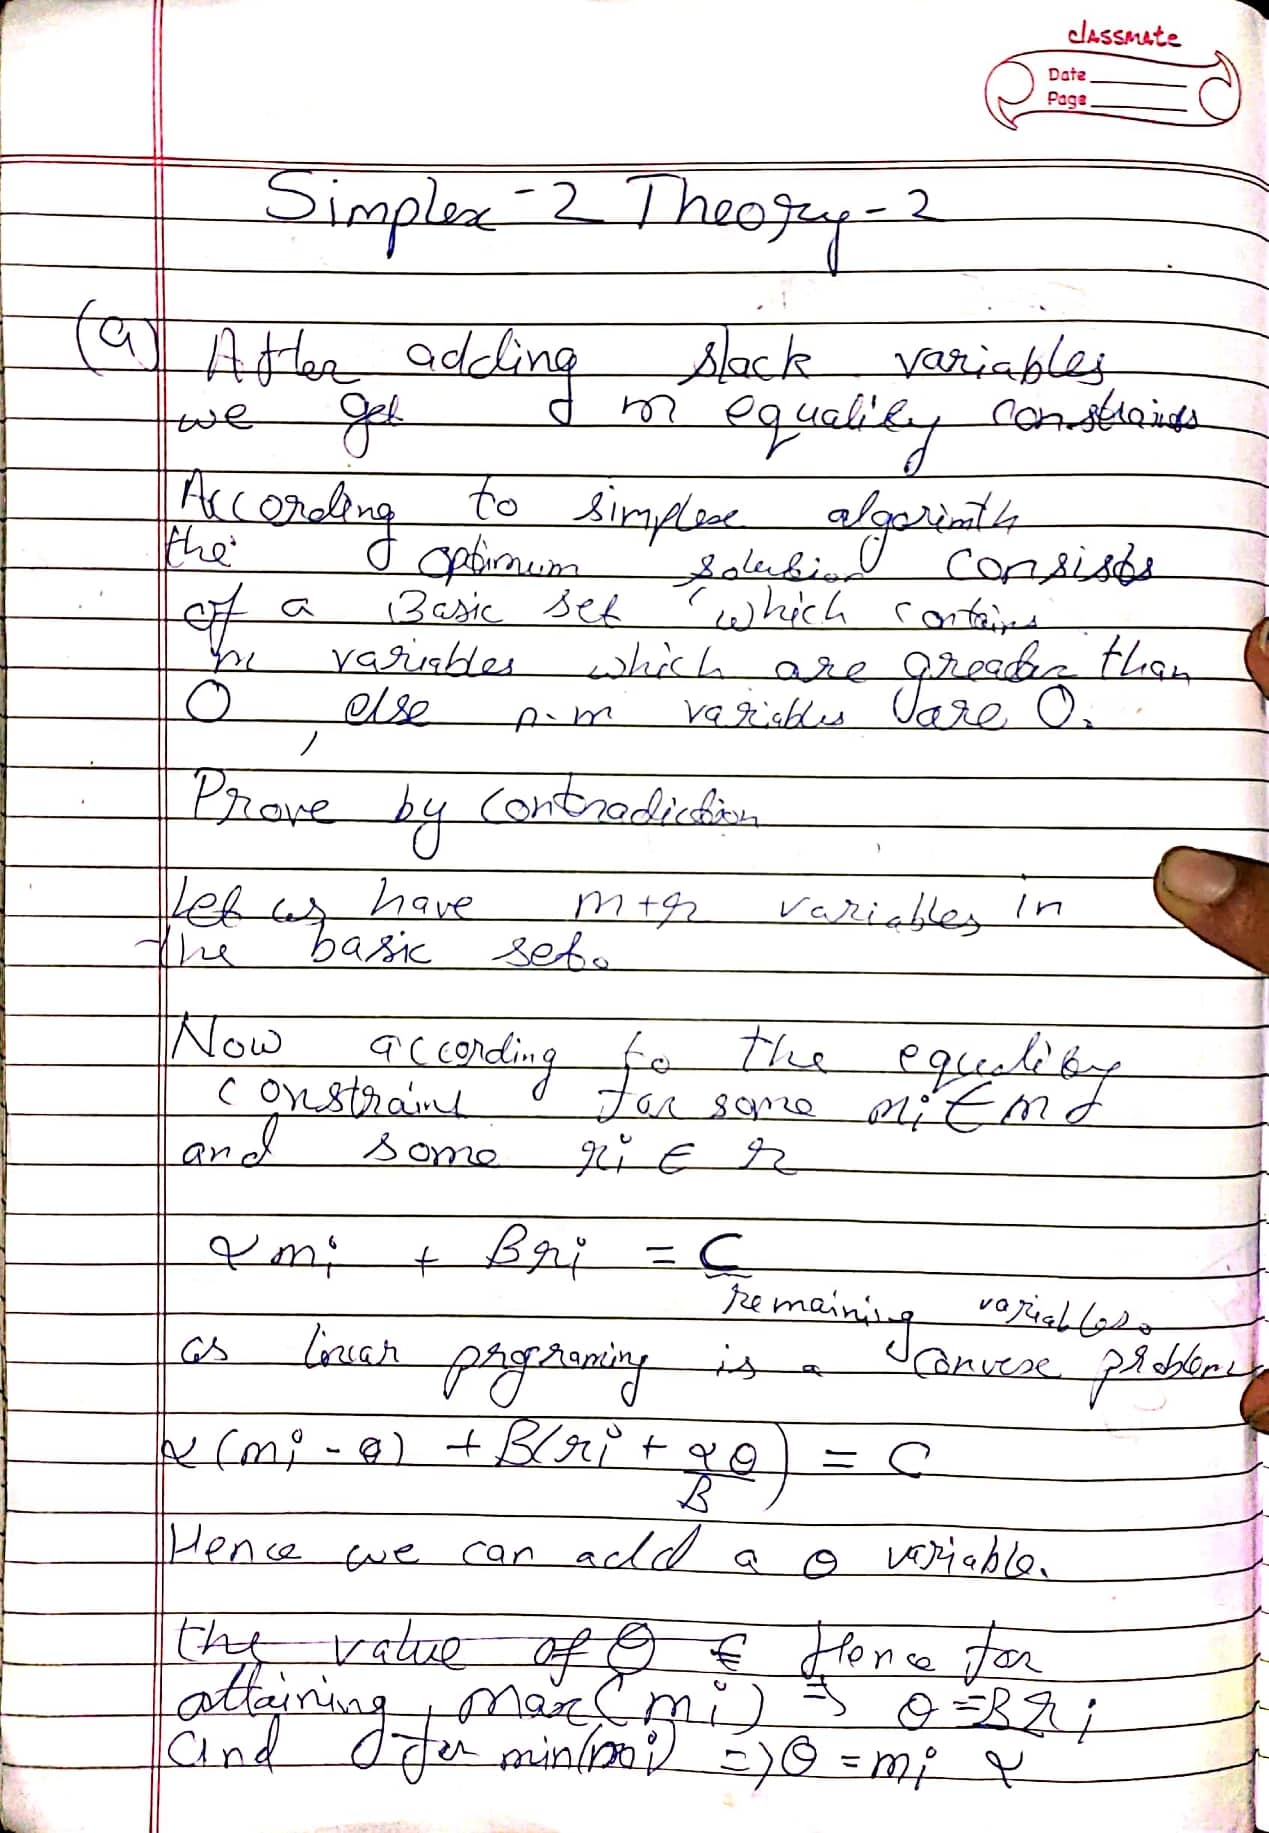 classmate
Date
Page
Simplex-2 Theory-2
(a) After adding slack variables
we get m equality constraints
According to simplex algorimth
the optimum solution consists
of a Basic set which contains
m variables which are greater than
0, else n-m variables are 0.
Prove by contradiction
Let us have m+r variables in
the basic set.
Now according to the equality
constraint for some mi ∈ m
and some ri ∈ r
α mi + B ri = C
remaining variables.
as linear prgraming is a convex problem
α(mi - θ) + B(ri + αθ/B) = C
Hence we can add a θ variable.
the value of θ ∈ Hence for
attaining max(mi) ⇒ θ = B ri
and for min(mi) ⇒ θ = mi α